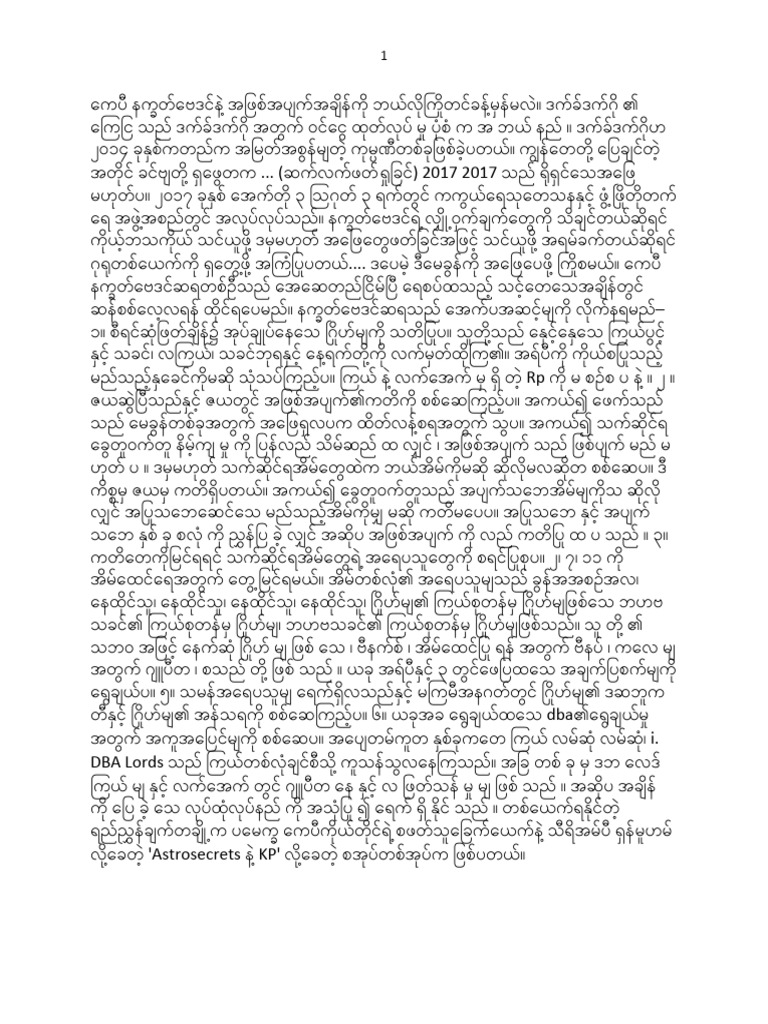 1
ကေပီ နက္ခတ်ဗေဒင်နဲ့ အဖြစ်အပျက်အချိန်ကို ဘယ်လိုကြိုတင်ခန့်မှန်မလဲ။ ဒက်ခ်ဒက်ဂို ၏
ကြေငြ သည် ဒက်ခ်ဒက်ဂို အတွက် ဝင်ငွေ ထုတ်လုပ် မှု ပုံစံ က အ ဘယ် နည် ။ ဒက်ခ်ဒက်ဂိုဟ
၂၀၁၄ ခုနှစ်ကတည်က အမြတ်အစွန်မျတဲ့ ကုမ္ပဏီတစ်ခုဖြစ်ခဲ့ပတယ်။ ကျွန်တေတို့ ပြေချင်တဲ့
အတိုင် ခင်ဗျတို့ ရှဖွေတက ... (ဆက်လက်ဖတ်ရှုခြင်) 2017 2017 သည် ရိုရှင်သေအဖြေ
မဟုတ်ပ။ ၂၀၁၇ ခုနှစ် အေက်တို ၃ သြဂုတ် ၃ ရက်တွင် ကကွယ်ရေသုတေသနနှင့် ဖွံ့ဖြိုတိုတက်
ရေ အဖွဲ့အစည်တွင် အလုပ်လုပ်သည်။ နက္ခတ်ဗေဒင်ရဲ့လျှို့ဝှက်ချက်တွေကို သိချင်တယ်ဆိုရင်
ကိုယ့်ဘသကိုယ် သင်ယူဖို့ ဒမှမဟုတ် အဖြေတွေဖတ်ခြင်အဖြင့် သင်ယူဖို့ အရမ်ခက်တယ်ဆိုရင်
ဂုရုတစ်ယေက်ကို ရှတွေ့ဖို့ အကြံပြုပတယ်.... ဒပေမဲ့ ဒီမေခွန်ကို အဖြေပေဖို့ ကြိုစမယ်။ ကေပီ
နက္ခတ်ဗေဒင်ဆရတစ်ဦသည် အေဆေတည်ငြိမ်ပြီ ရေစပ်ထသည့် သင့်တေသေအချိန်တွင်
ဆန်စစ်လေ့လရန် ထိုင်ရပေမည်။ နက္ခတ်ဗေဒင်ဆရသည် အေက်ပအဆင့်မျကို လိုက်နရမည်–
၁။ စီရင်ဆုံဖြတ်ချိန်၌ အုပ်ချုပ်နေသေ ဂြိုဟ်မျကို သတိပြုပ။ သူတို့သည် နေ့နှင့်နေ့သေ ကြယ်ပွင့်
နှင့် သခင်၊ လကြယ်၊ သခင်ဘုရနှင့် နေ့ရက်တို့ကို လက်မှတ်ထိုကြ၏။ အရ်ပီကို ကိုယ်စပြုသည့်
မည်သည့်နှခေင်ကိုမဆို သုံသပ်ကြည့်ပ။ ကြယ် နဲ့ လက်အေက် မှ ရှိ တဲ့ Rp ကို မ စဉ်စ ပ နဲ့ ။ ၂ ။
ဇယဆွဲပြီသည်နှင့် ဇယတွင် အဖြစ်အပျက်၏ကတိကို စစ်ဆေကြည့်ပ။ အကယ်၍ ဖေက်သည်
သည် မေခွန်တစ်ခုအတွက် အဖြေရှလပက ထိတ်လန့်စရအတွက် သွပ။ အကယ်၍ သက်ဆိုင်ရ
ခွေတူဝက်တူ နိမ့်ကျ မှု ကို ပြန်လည် သိမ်ဆည် ထ လျှင် ၊ အဖြစ်အပျက် သည် ဖြစ်ပျက် မည် မ
ဟုတ် ပ ။ ဒမှမဟုတ် သက်ဆိုင်ရအိမ်တွေထဲက ဘယ်အိမ်ကိုမဆို ဆိုလိုမလဆိုတ စစ်ဆေပ။ ဒီ
ကိစ္စမှ ဇယမှ ကတိရှိပတယ်။ အကယ်၍ ခွေတူဝက်တူသည် အပျက်သဘေအိမ်မျကိုသ ဆိုလို
လျှင် အပြုသဘေဆေင်သေ မည်သည့်အိမ်ကိုမျှ မဆို ကတိမပေပ။ အပြုသဘေ နှင့် အပျက်
သဘေ နှစ် ခု စလုံ ကို ညွှန်ပြ ခဲ့ လျှင် အဆိုပ အဖြစ်အပျက် ကို လည် ကတိပြု ထ ပ သည် ။ ၃။
ကတိတေကိုမြင်ရရင် သက်ဆိုင်ရအိမ်တွေရဲ့ အရေပသူတွေကို စရင်ပြုစုပ။ ၂၊ ၇၊ ၁၁ ကို
အိမ်ထေင်ရေအတွက် တွေ့မြင်ရမယ်။ အိမ်တစ်လုံ၏ အရေပသူမျသည် ခွန်အအစဉ်အလ၊
နေထိုင်သူ၊ နေထိုင်သူ၊ နေထိုင်သူ၊ နေထိုင်သူ၊ ဂြိုဟ်မျ၏ ကြယ်စုတန်မှ ဂြိုဟ်မျဖြစ်သေ ဘဟဗ
သခင်၏ ကြယ်စုတန်မှ ဂြိုဟ်မျ၊ ဘဟဗသခင်၏ ကြယ်စုတန်မှ ဂြိုဟ်မျဖြစ်သည်။ သူ တို့ ၏
သဘဝ အဖြင့် နေက်ဆုံ ဂြိုဟ် မျ ဖြစ် သေ ၊ ဗီနက်စ် ၊ အိမ်ထေင်ပြု ရန် အတွက် ဗီနပ် ၊ ကလေ မျ
အတွက် ဂျူပီတ ၊ စသည် တို့ ဖြစ် သည် ။ ယခု အရ်ပီနှင့် ၃ တွင်ဖေပြထသေ အချက်ပြစက်မျကို
ရွေချယ်ပ။ ၅။ သမန်အရေပသူမျ ရေက်ရှိလသည်နှင့် မကြမီအနဂတ်တွင် ဂြိုဟ်မျ၏ ဒဆဘူက
တီနှင့် ဂြိုဟ်မျ၏ အန်သရကို စစ်ဆေကြည့်ပ။ ၆။ ယခုအခ ရွေချယ်ထသေ dba၏ရွေချယ်မှု
အတွက် အကူအပြေင်မျကို စစ်ဆေပ။ အပျေတမ်ကူတ နှစ်ခုကတေ ကြယ် လမ်ဆုံ လမ်ဆုံ၊ i.
DBA Lords သည် ကြယ်တစ်လုံချင်စီသို့ ကူသန်သွလနေကြသည်။ အခြ တစ် ခု မှ ဒဘ လေဒ်
ကြယ် မျ နှင့် လက်အေက် တွင် ဂျူပီတ နေ နှင့် လ ဖြတ်သန် မှု မျ ဖြစ် သည် ။ အဆိုပ အချိန်
ကို ပြေ ခဲ့ သေ လုပ်ထုံလုပ်နည် ကို အသုံပြု ၍ ရေက် ရှိ နိုင် သည် ။ တစ်ယေက်ရနိုင်တဲ့
ရည်ညွှန်ချက်တချို့က ပမေက္ခ ကေပီကိုယ်တိုင်ရဲ့စဖတ်သူခြေက်ယေက်နဲ့ သီရိအမ်ပီ ရှန်မူဟမ်
လို့ခေတဲ့ 'Astrosecrets နဲ့ KP' လို့ခေတဲ့ စအုပ်တစ်အုပ်က ဖြစ်ပတယ်။